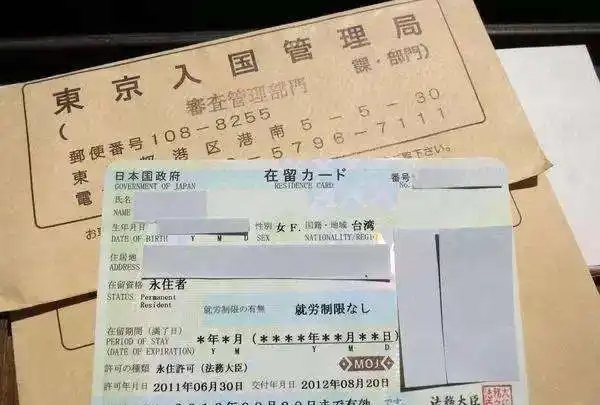 東京入国管理局
審査管理部門
( 課・部門)
郵便番号108-8255
東 港区港南5-5-30
電 -5796-7111
下さい。
お
日本国政府 在留カード 番号
GOVERNMENT OF JAPAN RESIDENCE CARD No.
氏名
NAME
生年月日 性別 女 F. 国籍・地域 台湾
DATE OF BIRTH Y M D SEX NATIONALITY/REGION
住居地
ADDRESS
在留資格 永住者
STATUS Permanent
Resident
就労制限の有無 就労制限なし
在留期間(満了日) *年*月(****年**月**日)
PERIOD OF STAY
(DATE OF EXPIRATION) Y M Y M D
MOJ
許可の種類 永住許可(法務大臣)
許可年月日 2011年06月30日 交付年月日 2012年08月20日
まで有効 です
法務大臣